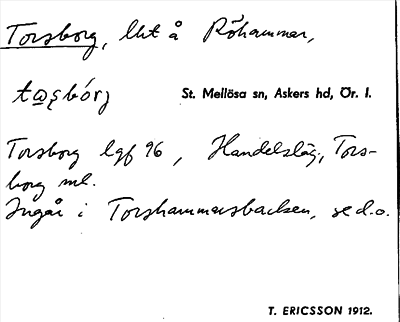 Torsborg, lht å Röhammar,
tω̲ʂbórj
St. Mellösa sn, Askers hd, Ör. l.
Torsborg lgf 96, Handelsläg., Tors-
borg ml.
Ingår i Torshammarsbacken, se d.o.
T. ERICSSON 1912.